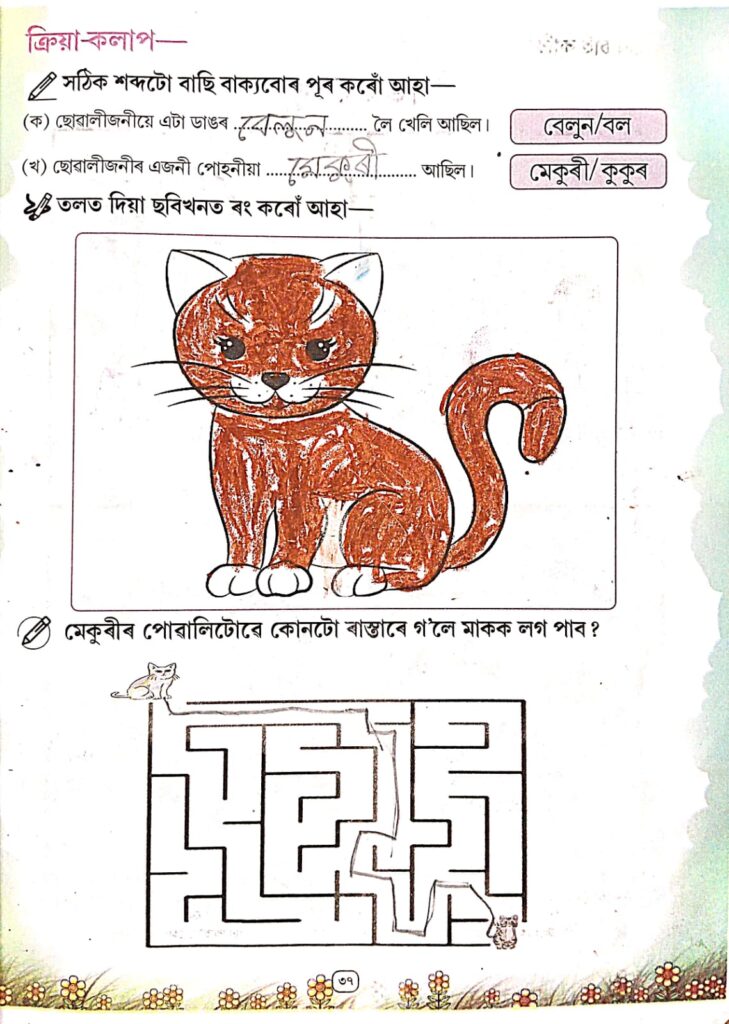 ক্ৰিয়া-কলাপ—
সঠিক শব্দটো বাছি বাক্যবোৰ পূৰ কৰোঁ আহা—
(ক) ছোৱালীজনীয়ে এটা ডাঙৰ ...বেলুন... লৈ খেলি আছিল। বেলুন/বল
(খ) ছোৱালীজনীৰ এজনী পোহনীয়া ...মেকুৰী... আছিল। মেকুৰী/কুকুৰ
তলত দিয়া ছবিখনত ৰং কৰোঁ আহা—
মেকুৰীৰ পোৱালিটোৱে কোনটো ৰাস্তাৰে গ'লে মাকক লগ পাব?
৩৭